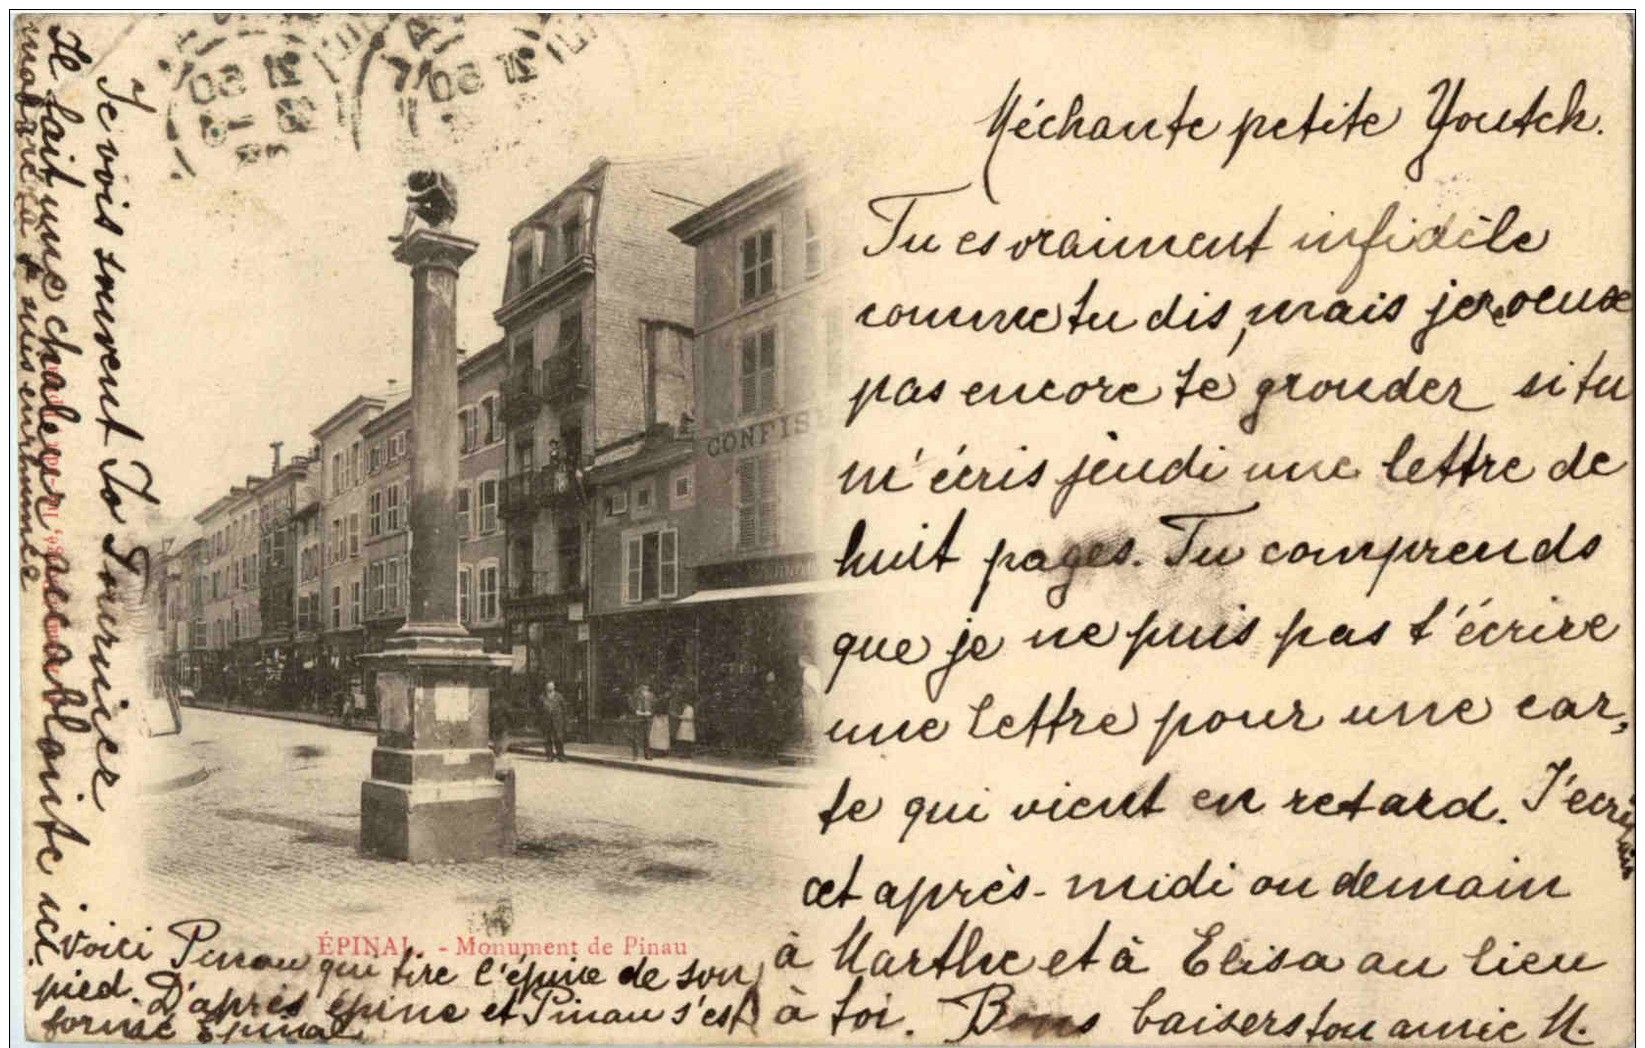 Méchante petite Youtch.
Tu es vraiment infidèle
comme tu dis, mais je veux
pas encore te gronder si tu
m'écris jeudi une lettre de
huit pages. Tu comprends
que je ne puis pas t'écrire
une lettre pour une car-
te qui vient en retard. J'écrirais
cet après-midi ou demain
à Marthe et à Elisa au lieu
à toi. Bons baisers ton amie M.
CONFIS
ÉPINAL. - Monument de Pinau
Voici Pinau qui tire l'épine de son
pied. D'après épine et Pinau s'est
formé Epinal
Je vois souvent Jo Fournier
Il fait une chaleur accablante ici
malgré ça suis enrhumée